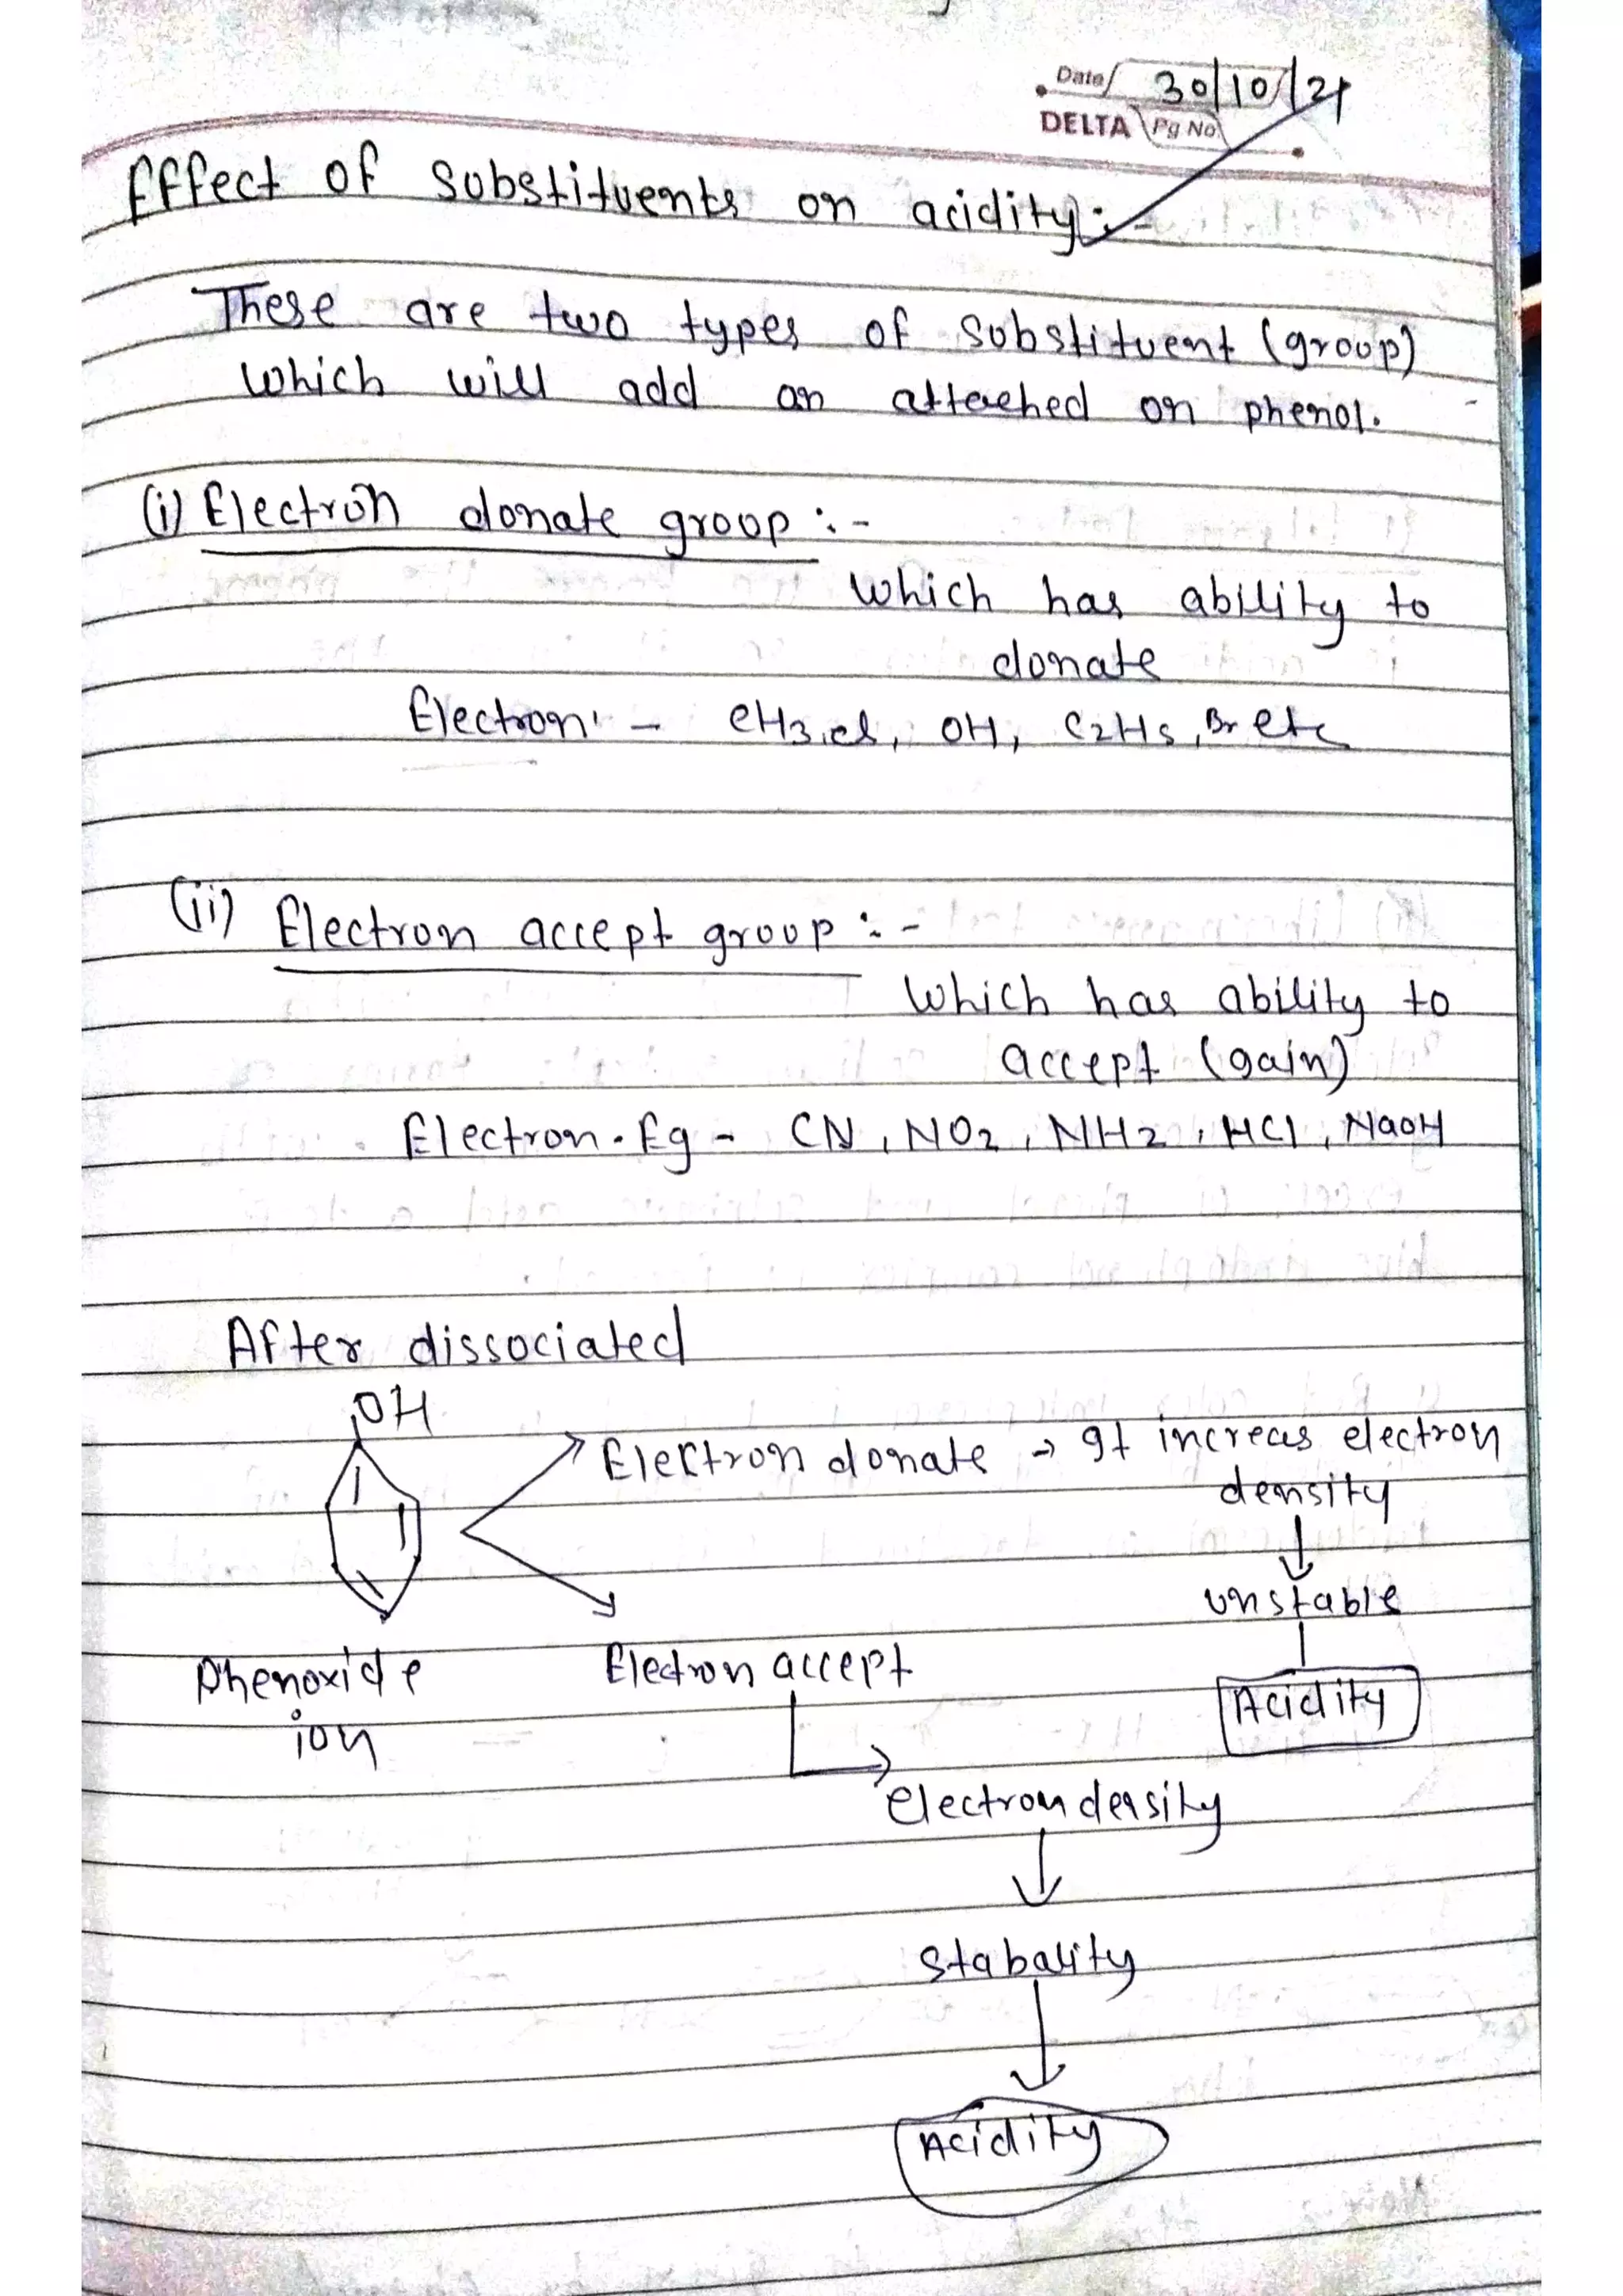 Date 30/10/21
DELTA Pg No.
Effect of substituents on acidity:-
These are two types of substituent (group)
which will add an attached on phenol.
(i) Electron donate group :-
which has ability to
donate
Electron - CH3, Cl, OH, C2H5, Br etc
(ii) Electron accept group :-
which has ability to
accept (gain)
Electron. Eg - CN, NO2, NH2, HCl, NaOH
After dissociated
OH
Electron donate → It increas electron
density
↓
unstable
Acidity
Phenoxide
ion
Electron accept
electron density
↓
stabality
↓
Acidity